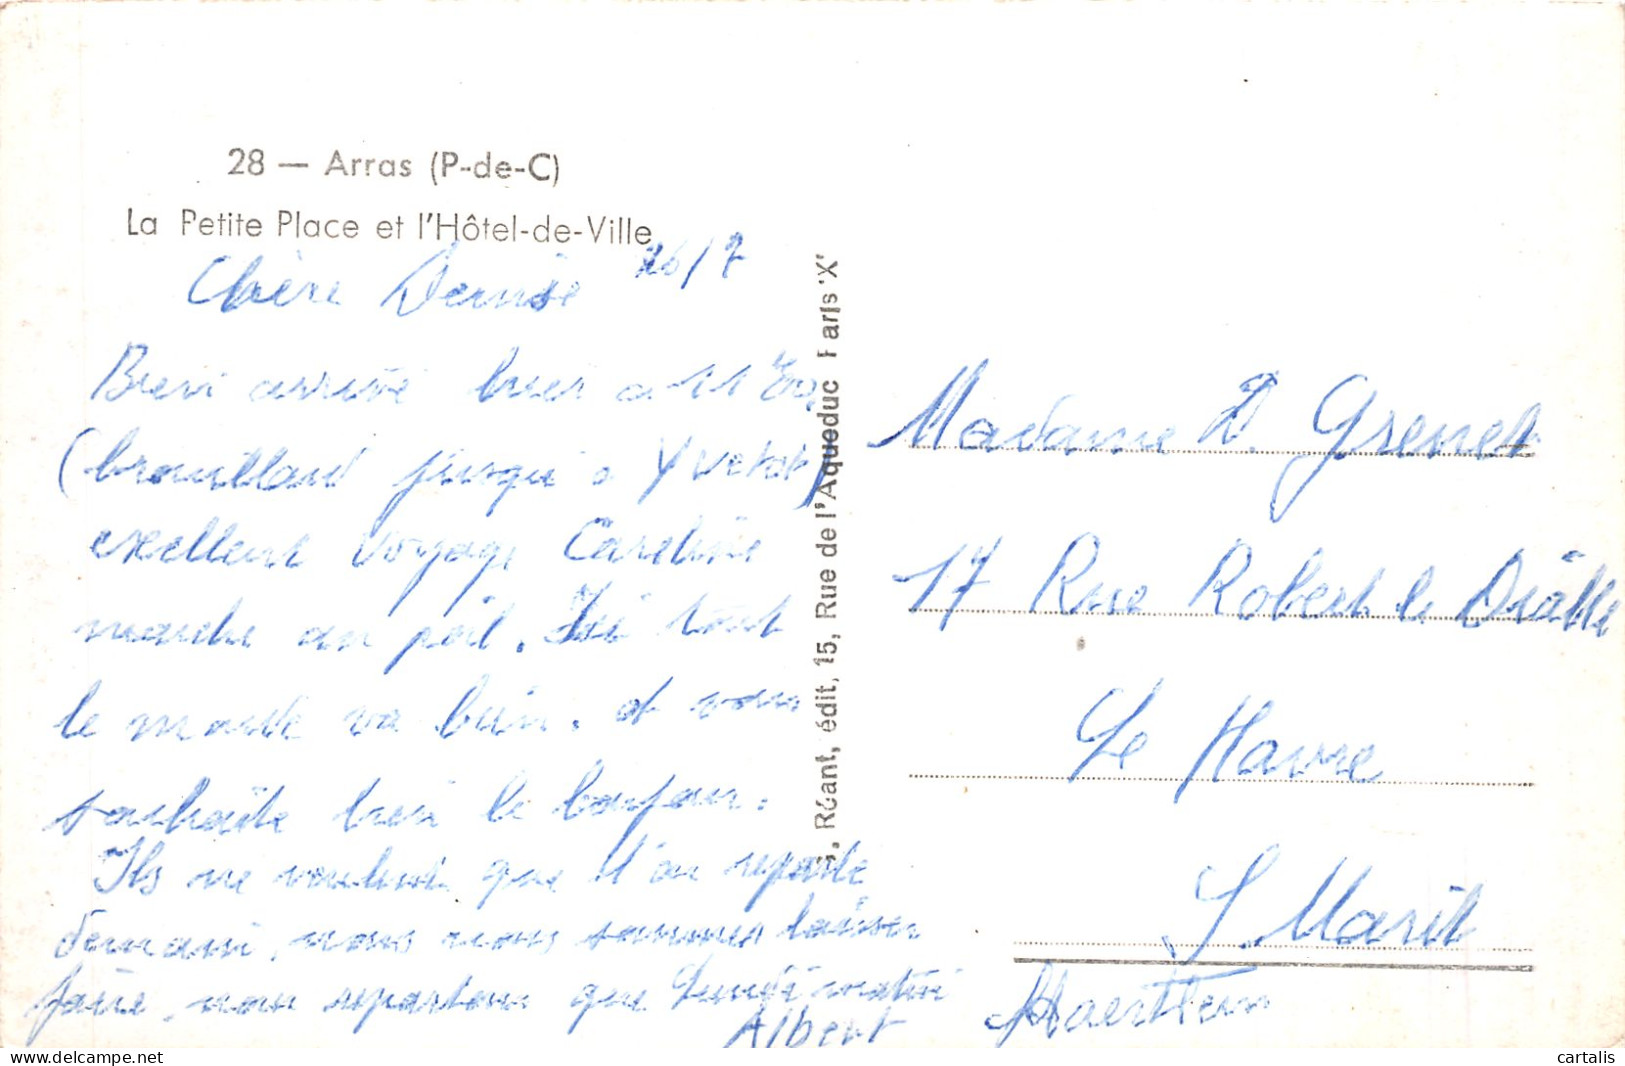 28 — Arras (P-de-C)
La Petite Place et l'Hôtel-de-Ville
26/7
Chère Denise
Bien arrivé hier a 11
(brouillard jusqu'a Yvetot)
excellent voyage Caroline
marche au poil. Ici tout
le monde va bien. et vous
souhaite bien le bonjour.
Ils ne veulent que l'on reparte
demain, nous nous sommes laisser
faire, nous repartons que Lundi matin
Albert
Réant, édit, 15, Rue de l'Aqueduc Paris 'X'
Madame D. Grenet
17 Rue Robert le Diable
Le Havre
S. Marit
cartalis